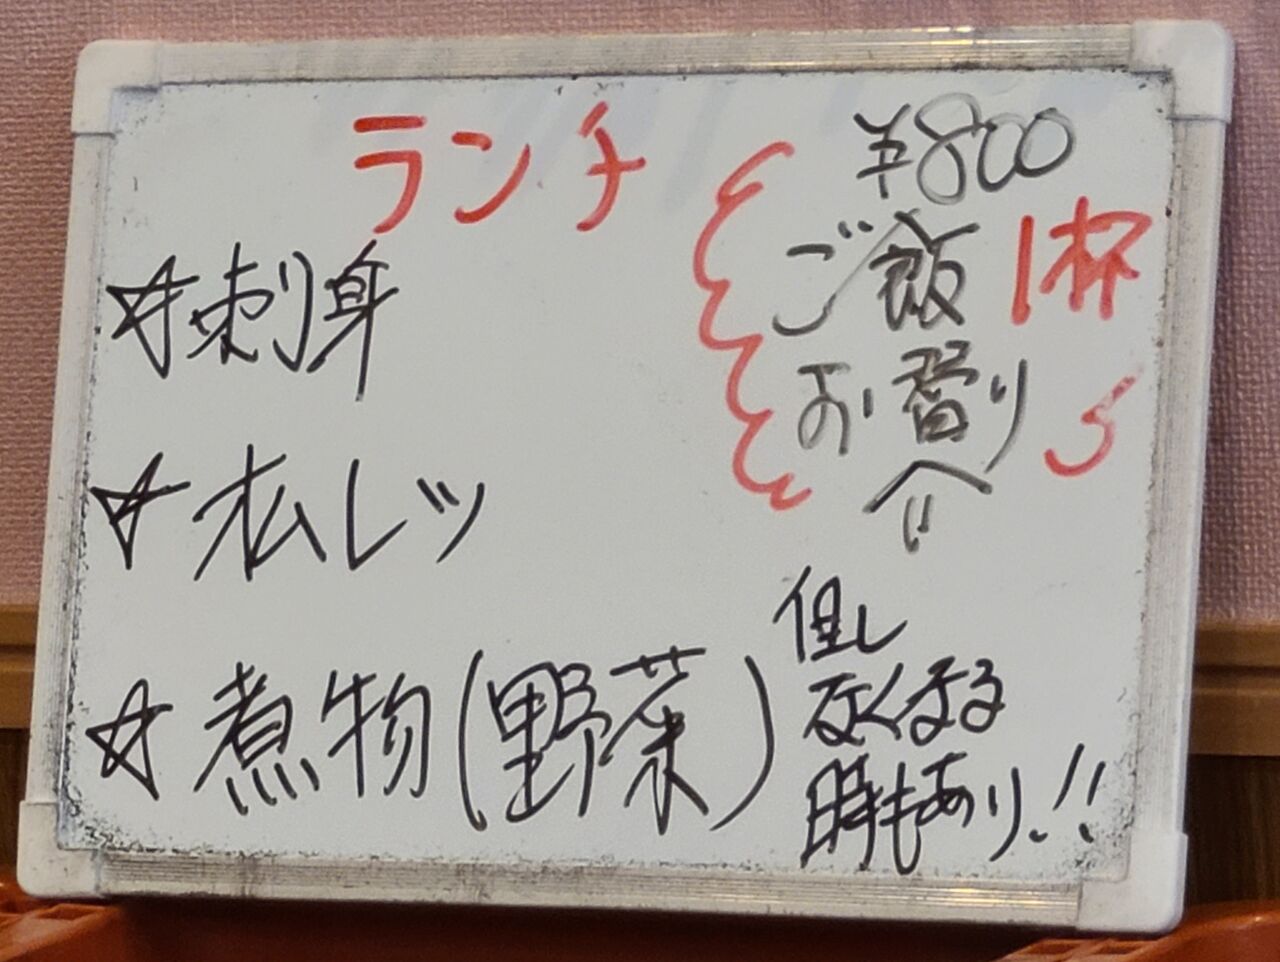 ランチ
¥800
☆刺身
☆オムレツ
☆煮物(野菜)
ご飯1杯
お替り
但し
なくなる
時もあり.!!